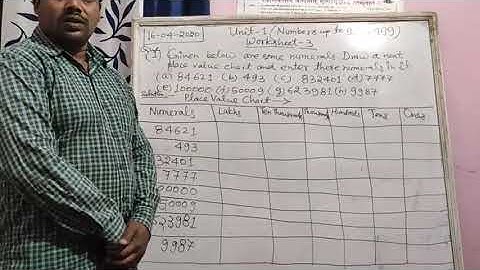 16-04-2020
Unit-1 (Numbers up to 9 999)
Worksheet-3
Q.(1) Given below are some numerals. Draw a neat
place value chart and enter these numerals in it
(a) 84621 (b) 493 (c) 832401 (d) 7777
(e) 100000 (f) 50009 (g) 623981 (h) 9987
Solution
Place Value Chart
Numerals Lakhs Ten Thousands Thousands Hundreds Tens Ones
84621
493
32401
7777
00000
50009
23981
9987